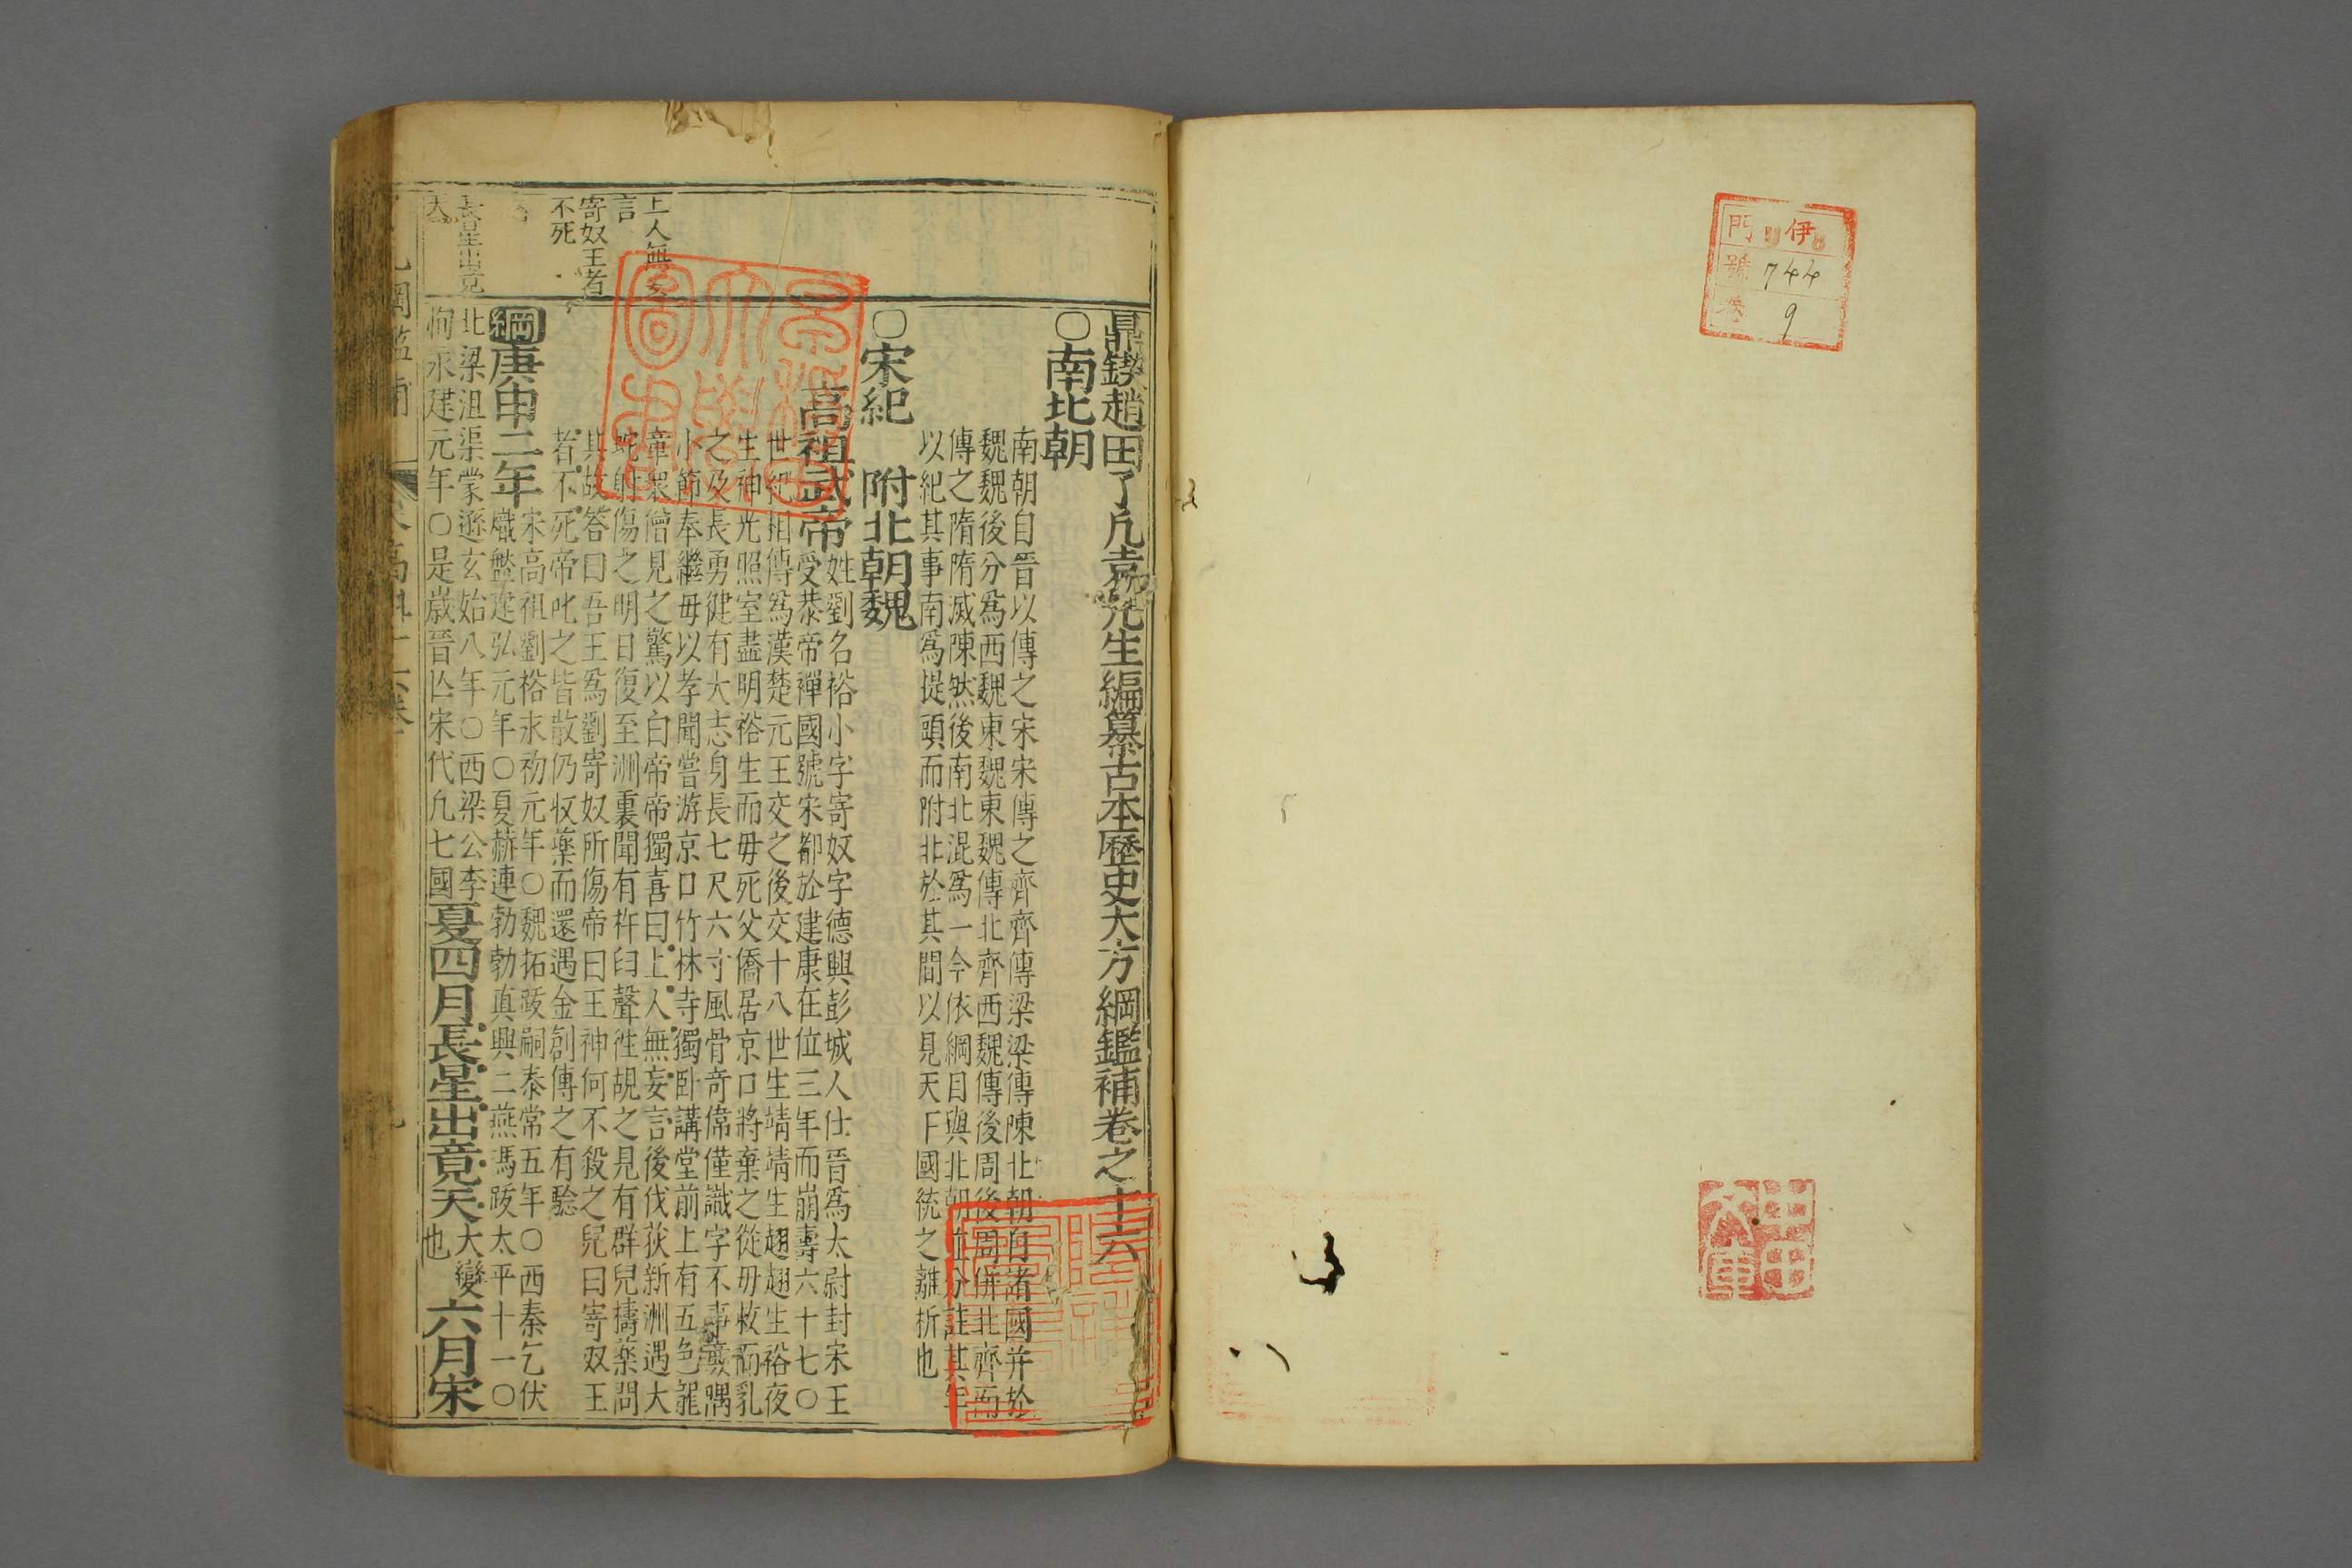 伊
門
號 744
卷 9
鼎鍥趙田了凡袁先生編纂古本歷史大方綱鑑補卷之十六
○南北朝
南朝自晉以傳之宋宋傳之齊齊傳梁梁傳陳北朝自諸國并於
魏魏後分為西魏東魏東魏傳北齊西魏傳後周後周併北齊而
傳之隋隋滅陳然後南北混為一今依綱目與北朝並分註其年
以紀其事南為提頭而附北於其間以見天下國統之離析也
○宋紀 附北朝魏
高祖武帝
姓劉名裕小字寄奴字德輿彭城人仕晉為太尉封宋王
受恭帝禪國號宋都於建康在位三年而崩壽六十七○
世紀相傳為漢楚元王交之後交十八世生靖靖生翹翹生裕夜
生神光照室盡明裕生而毋死父僑居京口將棄之從毋救而乳
之及長勇健有大志身長七尺六寸風骨奇偉僅識字不事廉隅
小節奉繼毋以孝聞嘗游京口竹林寺獨臥講堂前上有五色龍
章衆僧見之驚以白帝帝獨喜曰上人無妄言後伐荻新洲遇大
蛇射傷之明日復至洲裏聞有杵臼聲往覘之見有群兒擣藥問
其故答曰吾王為劉寄奴所傷帝曰王神何不殺之兒曰寄奴王
者不死帝叱之皆散仍收藥而還遇金創傅之有驗
綱庚申二年
宋高祖劉裕永初元年○魏拓跋嗣泰常五年○西秦乞伏
熾盤建弘元年○夏赫連勃勃真興二燕馮跋太平十一○
北梁沮渠蒙遜玄始八年○西梁公李
恂永建元年○是歲晉亡宋代凡七國
夏四月長星出竟天大變也六月宋
上人無妄
言
寄奴王者
不死
長星出竟
天